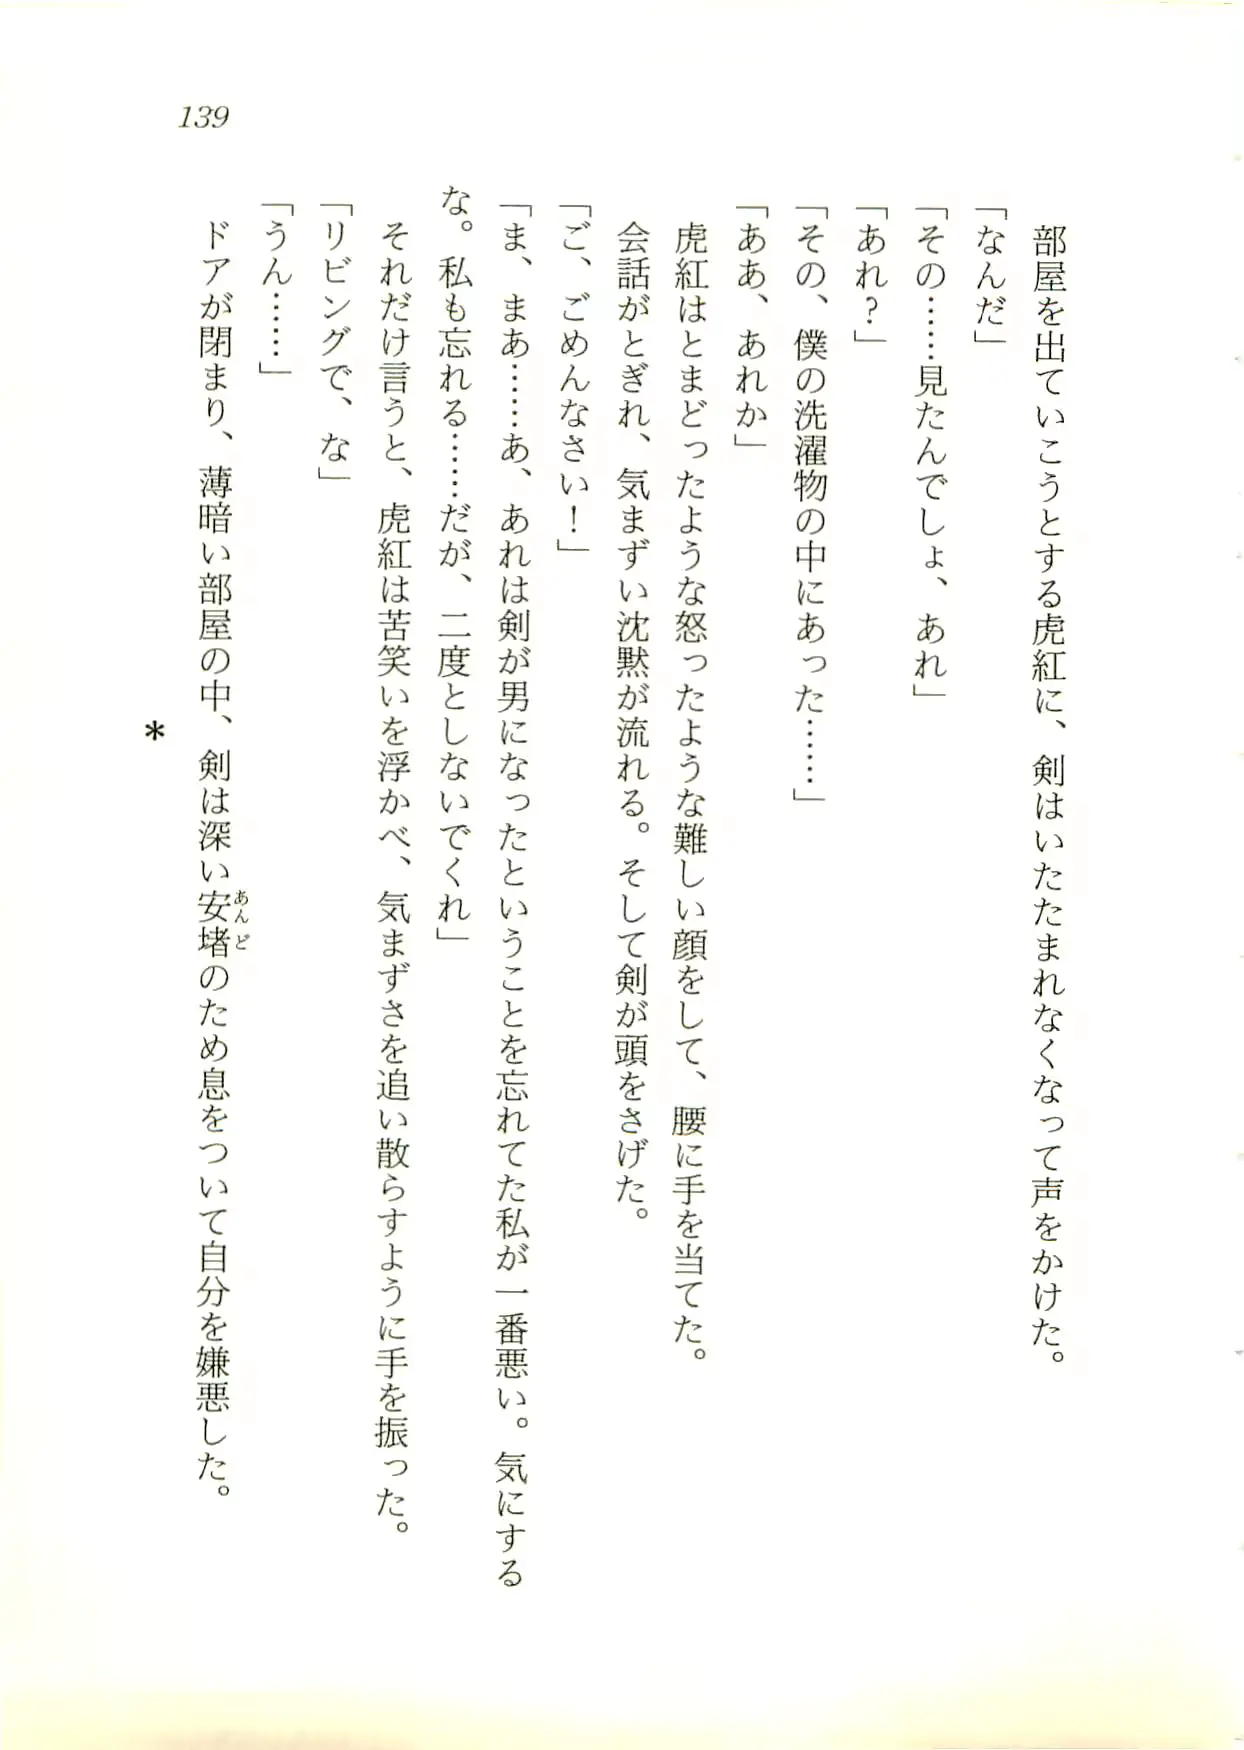 139
部屋を出ていこうとする虎紅に、剣はいたたまれなくなって声をかけた。
「なんだ」
「その……見たんでしょ、あれ」
「あれ？」
「その、僕の洗濯物の中にあった……」
「ああ、あれか」
虎紅はとまどったような怒ったような難しい顔をして、腰に手を当てた。
会話がとぎれ、気まずい沈黙が流れる。そして剣が頭をさげた。
「ご、ごめんなさい！」
「ま、まあ……あ、あれは剣が男になったということを忘れてた私が一番悪い。気にする
な。私も忘れる……だが、二度としないでくれ」
それだけ言うと、虎紅は苦笑いを浮かべ、気まずさを追い散らすように手を振った。
「リビングで、な」
「うん……」
ドアが閉まり、薄暗い部屋の中、剣は深い安堵のため息をついて自分を嫌悪した。
あんど
*